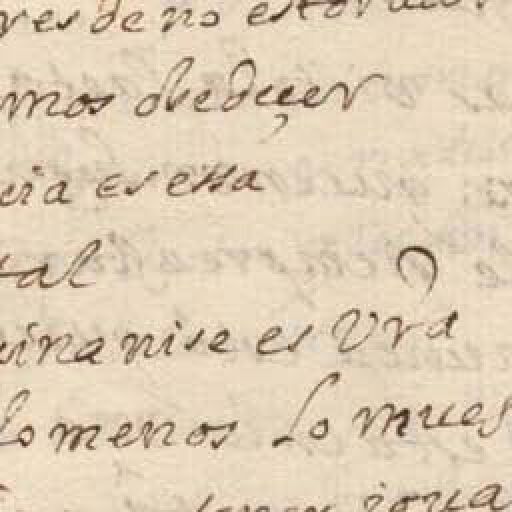 res de no estorua
mos obedeçer
cia es essa
tal
uina nise es Vra
lo menos lo mues